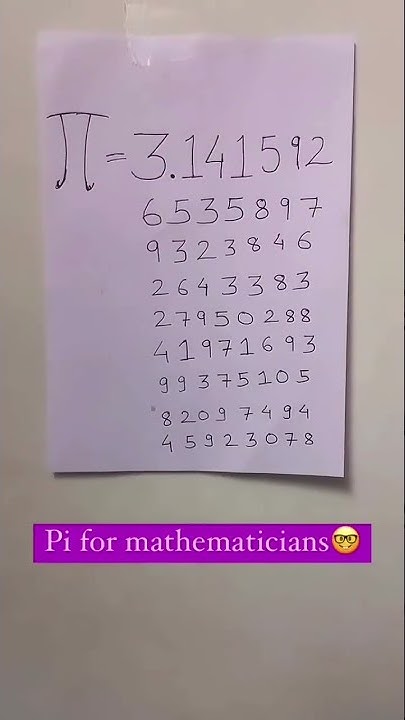 π = 3.141592
6535897
9323846
2643383
27950288
41971693
99375105
82097494
45923078
Pi for mathematicians🤓